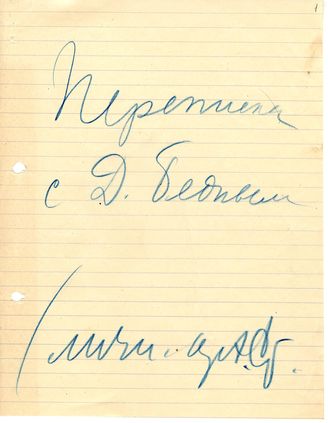 1
Переписка
с Д. Бедным
(личн.